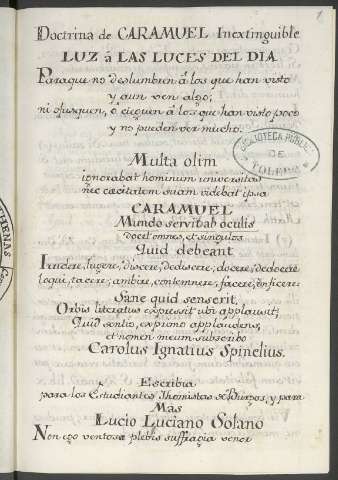 Doctrina de CARAMUEL Inextinguible
LUZ â LAS LUCES DEL DIA
Paraque no deslumbren â los que han visto
y aun ven algo;
ni ofusquen, ô cieguen â los que han visto poco
y no pueden ver mucho.
BIBLIOTECA PUBLICA
DE
TOLEDO
Multa olim
ignorabat hominum universitas
nec cacitatem suam videbat ipsa
CARAMUEL
Mundo servitab oculis
docet omnes, et singulos
Quid debeant
Irridere, lugere, discere, dediscere, docere, dedocere
loqui, tacere, ambire, contemnere, facere, conficere.
Sane quid senserit
Orbis literatus expressit ubi applausit;
Quid sentio, exprimo applaudens,
et nomen meum subscribo
Carolus Ignatius Spinelius.
Escribia
para los Estudiantes Thomistas de Burgos, y para
Mas
Lucio Luciano Solano
Non ego ventosa plebis suffragia venor